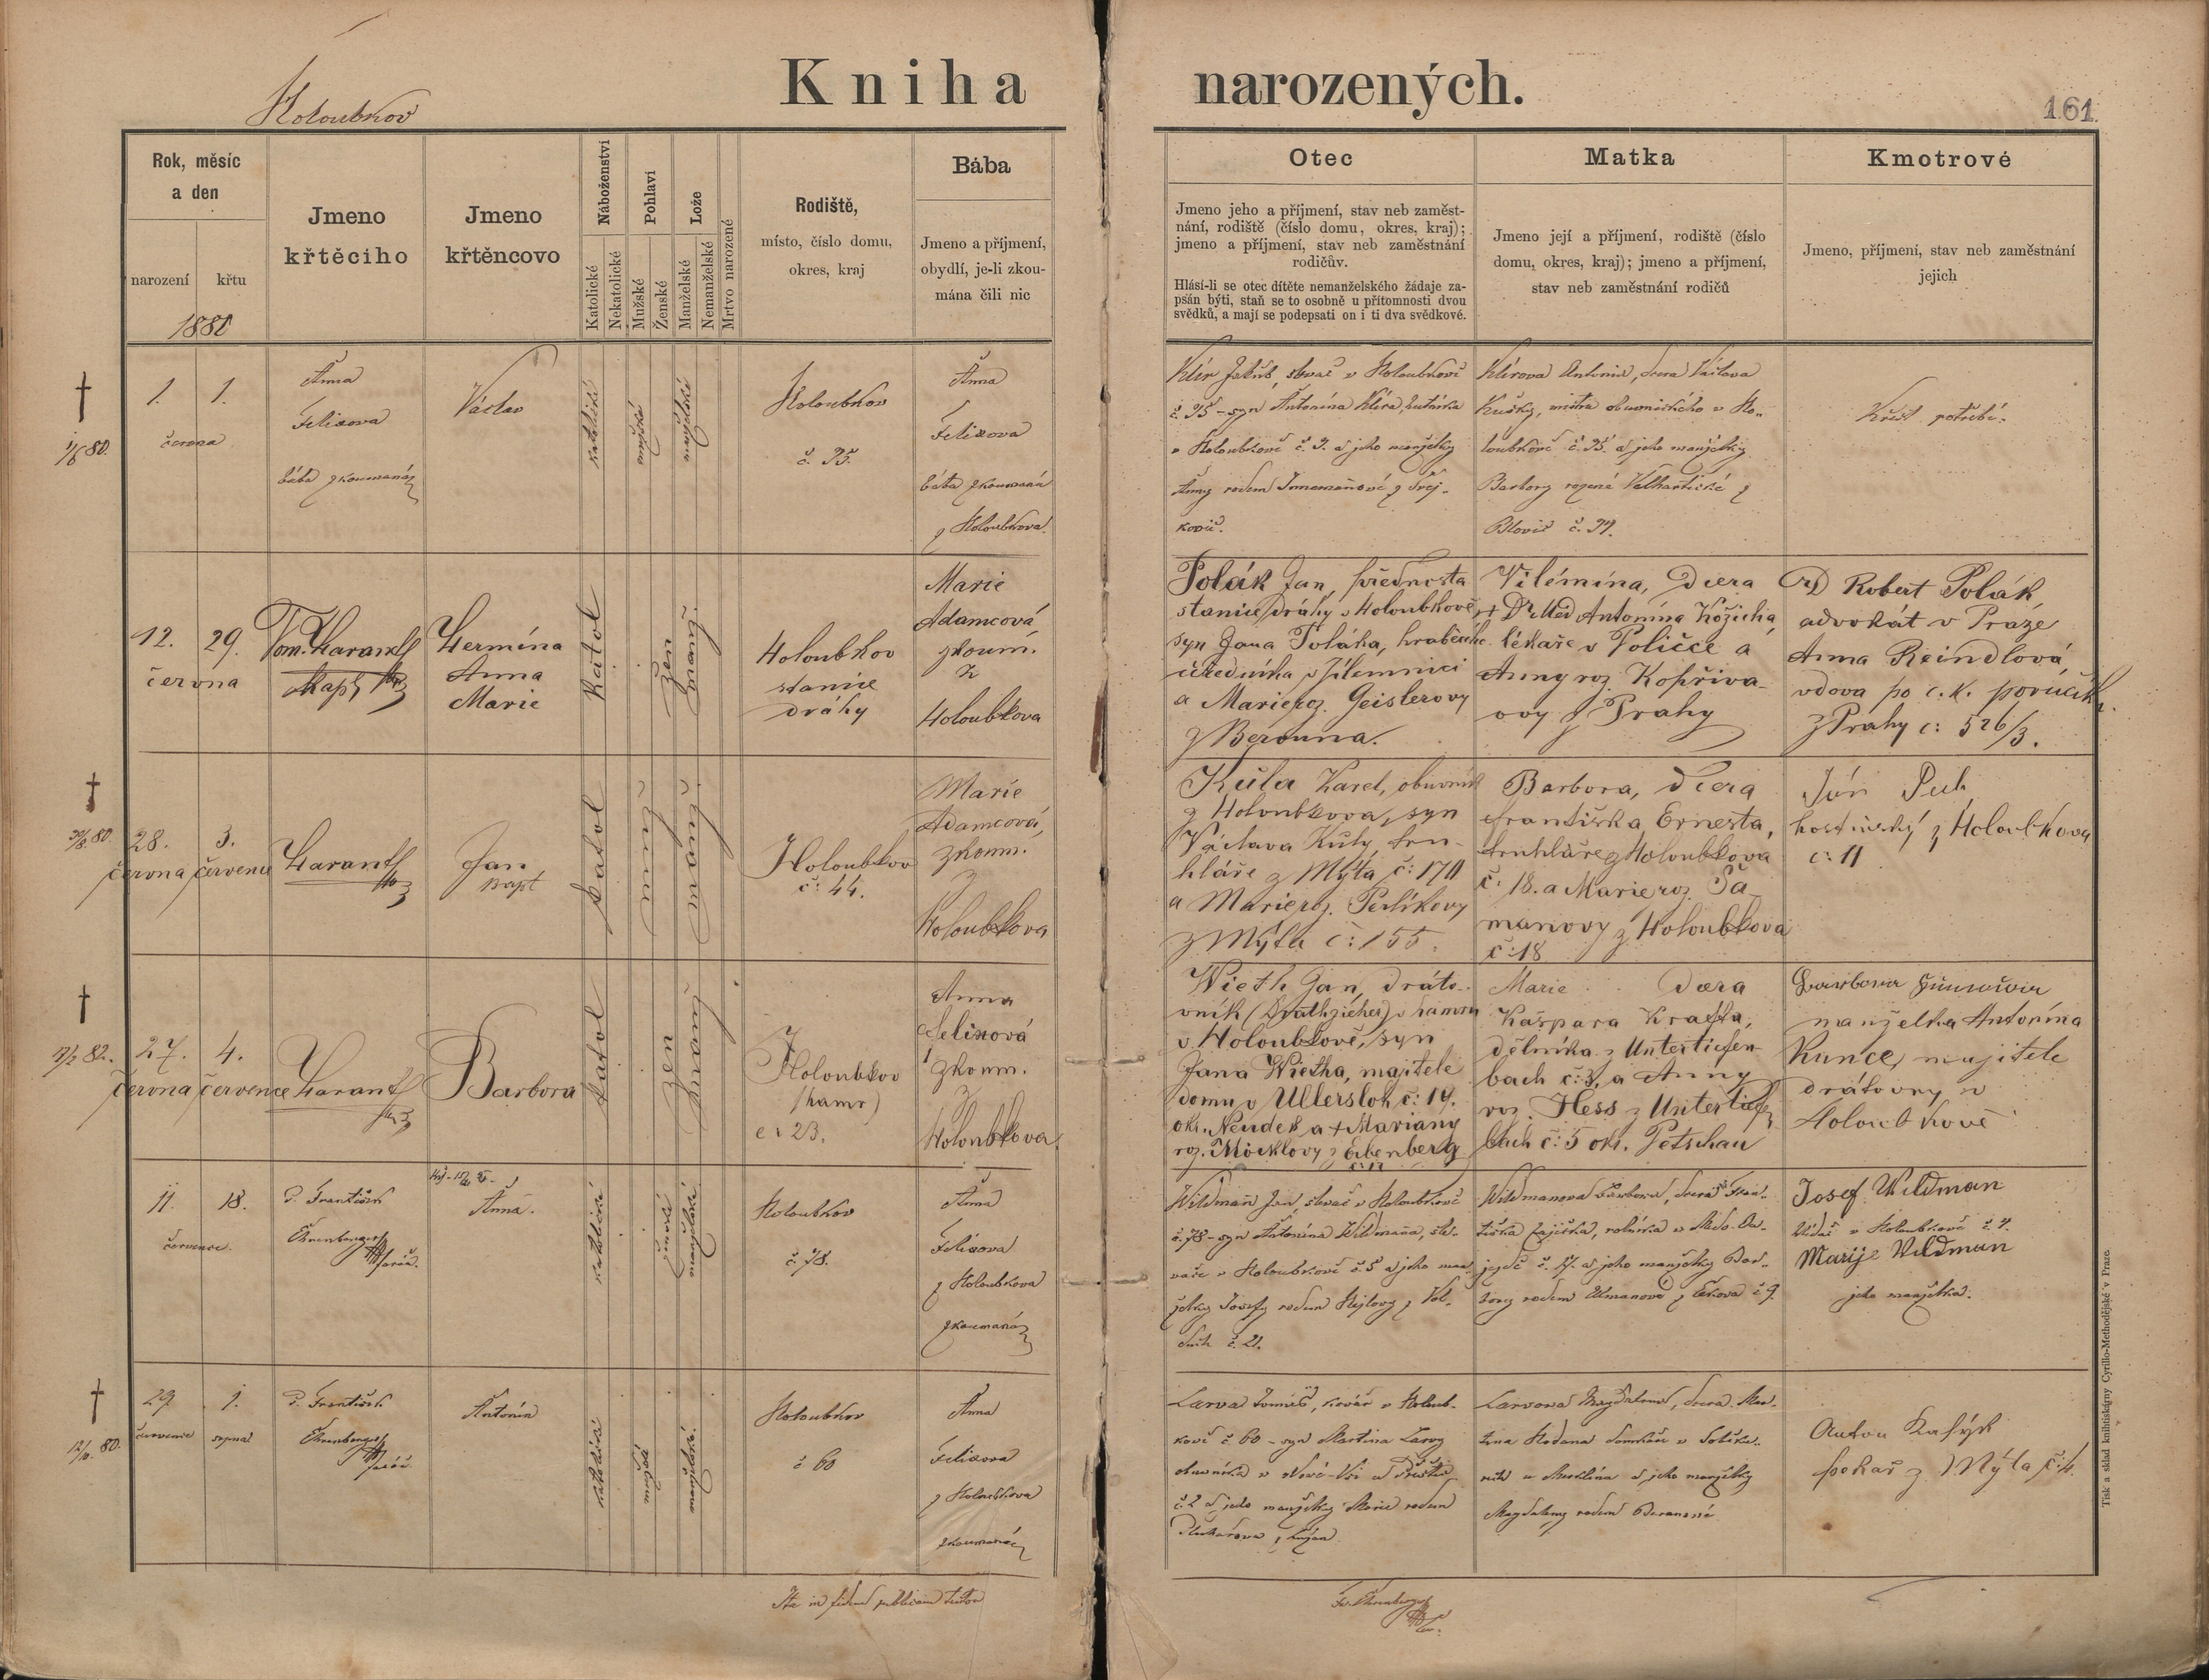 Kniha narozených.
Holoubkov
161.
Rok, měsíc
a den
narození
křtu
1880
Jmeno
křtěcího
Jmeno
křtěncovo
Náboženství
Katolické
Nekatolické
Pohlaví
Mužské
Ženské
Lože
Manželské
Nemanželské
Mrtvo narozené
Rodiště,
místo, číslo domu,
okres, kraj
Bába
Jmeno a příjmení,
obydlí, je-li zkou-
mána čili nic
Otec
Jmeno jeho a příjmení, stav neb zaměst-
nání, rodiště (číslo domu, okres, kraj);
jmeno a příjmení, stav neb zaměstnání
rodičův.
Hlásí-li se otec dítěte nemanželského žádaje za-
psán býti, staň se to osobně u přítomnosti dvou
svědků, a mají se podepsati on i ti dva svědkové.
Matka
Jmeno její a příjmení, rodiště (číslo
domu, okres, kraj); jmeno a příjmení,
stav neb zaměstnání rodičů
Kmotrové
Jmeno, příjmení, stav neb zaměstnání
jejich
1. 1.
června
Anna
Felixova
bába zkoumaná
Václav
katolické
mužské
manželské
Holoubkov
č. 95.
Anna
Felixova
bába zkoumaná
z Holoubkova
Klír Jakub, slevač v Holoubkově
č. 95 - syn Antonína Klíra, hutníka
v Holoubkově č. 9. a jeho manželky
Anny rodem
Klírova Antonie, dcera Václava
Kušky, mistra obuvnického v Ho-
loubkově č. 95. a jeho manželky
Barbory rozené
Blovic č. 99.
Křest z potřeby.
12. 29.
června
Tom. Harant
kapl.
Hermína
Anna
Marie
Katol
žen
manž.
Holoubkov
stanice
dráhy
Marie
Adamcová,
zkoum.
z
Holoubkova
Polák Jan, přednosta
stanice dráhy v Holoubkově,
syn Jana Poláka, hraběcího
úředníka v Jilemnici
a Marie roz. Geislerovy
z Berouna.
Vilémína, dcera
+ Dr. Med Antonína Kožicha,
lékaře v Poličce a
Anny roz. Kopřiva-
ovy z Prahy
Robert Polák,
advokát v Praze
Anna Reindlová,
vdova po c. k. poručík.
z Prahy č: 526/3.
28. 3.
června července
Harant
Jan
Bapt
katol
manž.
Holoubkov
č: 44.
Marie
Adamcová,
zkoum.
z
Holoubkova
Kůla Karel, obuvník
z Holoubkova, syn
Václava Kůly, tru-
hláře z Mýta č: 170
a Marie roz. Pedlíkovy
z Mýta č: 155.
Barbora, dcera
Františka Ernesta,
truhláře z Holoubkova
č: 18. a Marie roz. Ša-
manovy z Holoubkova
č: 18
Jan Puh
hostinský z Holoubkova
č: 11
27. 4.
června července
Harant
Barbora
katol
žen
manž.
Holoubkov
(hamr)
č: 23.
Anna
Felixová
zkoum.
z
Holoubkova
Wieth Jan, dráto-
vník (Drathzieher) v hamru
v Holoubkově, syn
Jana Wietha, majitele
domu v Ullersloh č: 14.
okr. Neudek a + Mariany
roz. Möcklovy z Eibenberg
Marie dcera
Kašpara Krafta,
dělníka z Untertiefen-
bach č: 3, a Anny
roz. Hess z Untertiefen
bach č: 5 okr. Petschau
manželka Antonína
Kunce, majitele
drátovny v
Holoubkově
11. 18.
července
P. František
Ehrenberger
farář.
Anna.
katolické
ženské
manželské
Holoubkov
č. 78.
Anna
Felixova
z Holoubkova
zkoumaná
Wildman Jan, slevač v Holoubkově
č. 78 - syn Antonína Wildmana, sle-
vače v Holoubkově č. 5 a jeho man-
želky Josefy rodem Hejlovy z Vol-
duch č. 21.
Wildmanova Barbora, dcera Fran-
tiška Zajíčka, rolníka v
č. 17. a jeho manželky Bar-
bory rodem Ulmanové z Čekova č. 9.
Josef Wildman
v Holoubkově č. 4.
Marije Wildman
jeho manželka.
29. 1.
července srpna
P. František
Ehrenberger
farář.
Antonín
katolické
mužské
manželské
Holoubkov
č 60
Anna
Felixova
z Holoubkova
zkoumaná
Larva Tomáš, kovář v Holoub-
kově č 60 - syn Martina Larvy
obuvníka v Nové-Vsi u
č. 2 a jeho manželky Marie rodem
Larvova Magdalena, dcera Mar-
tina
u Merklína a jeho manželky
Magdaleny rodem Beranové
Anton Kasýk
pekař z Mýta č: 4.
Ita in fidem publicam testor
Fr. Ehrenberger
Tisk a sklad knihtiskárny Cyrillo-Methodějské v Praze.